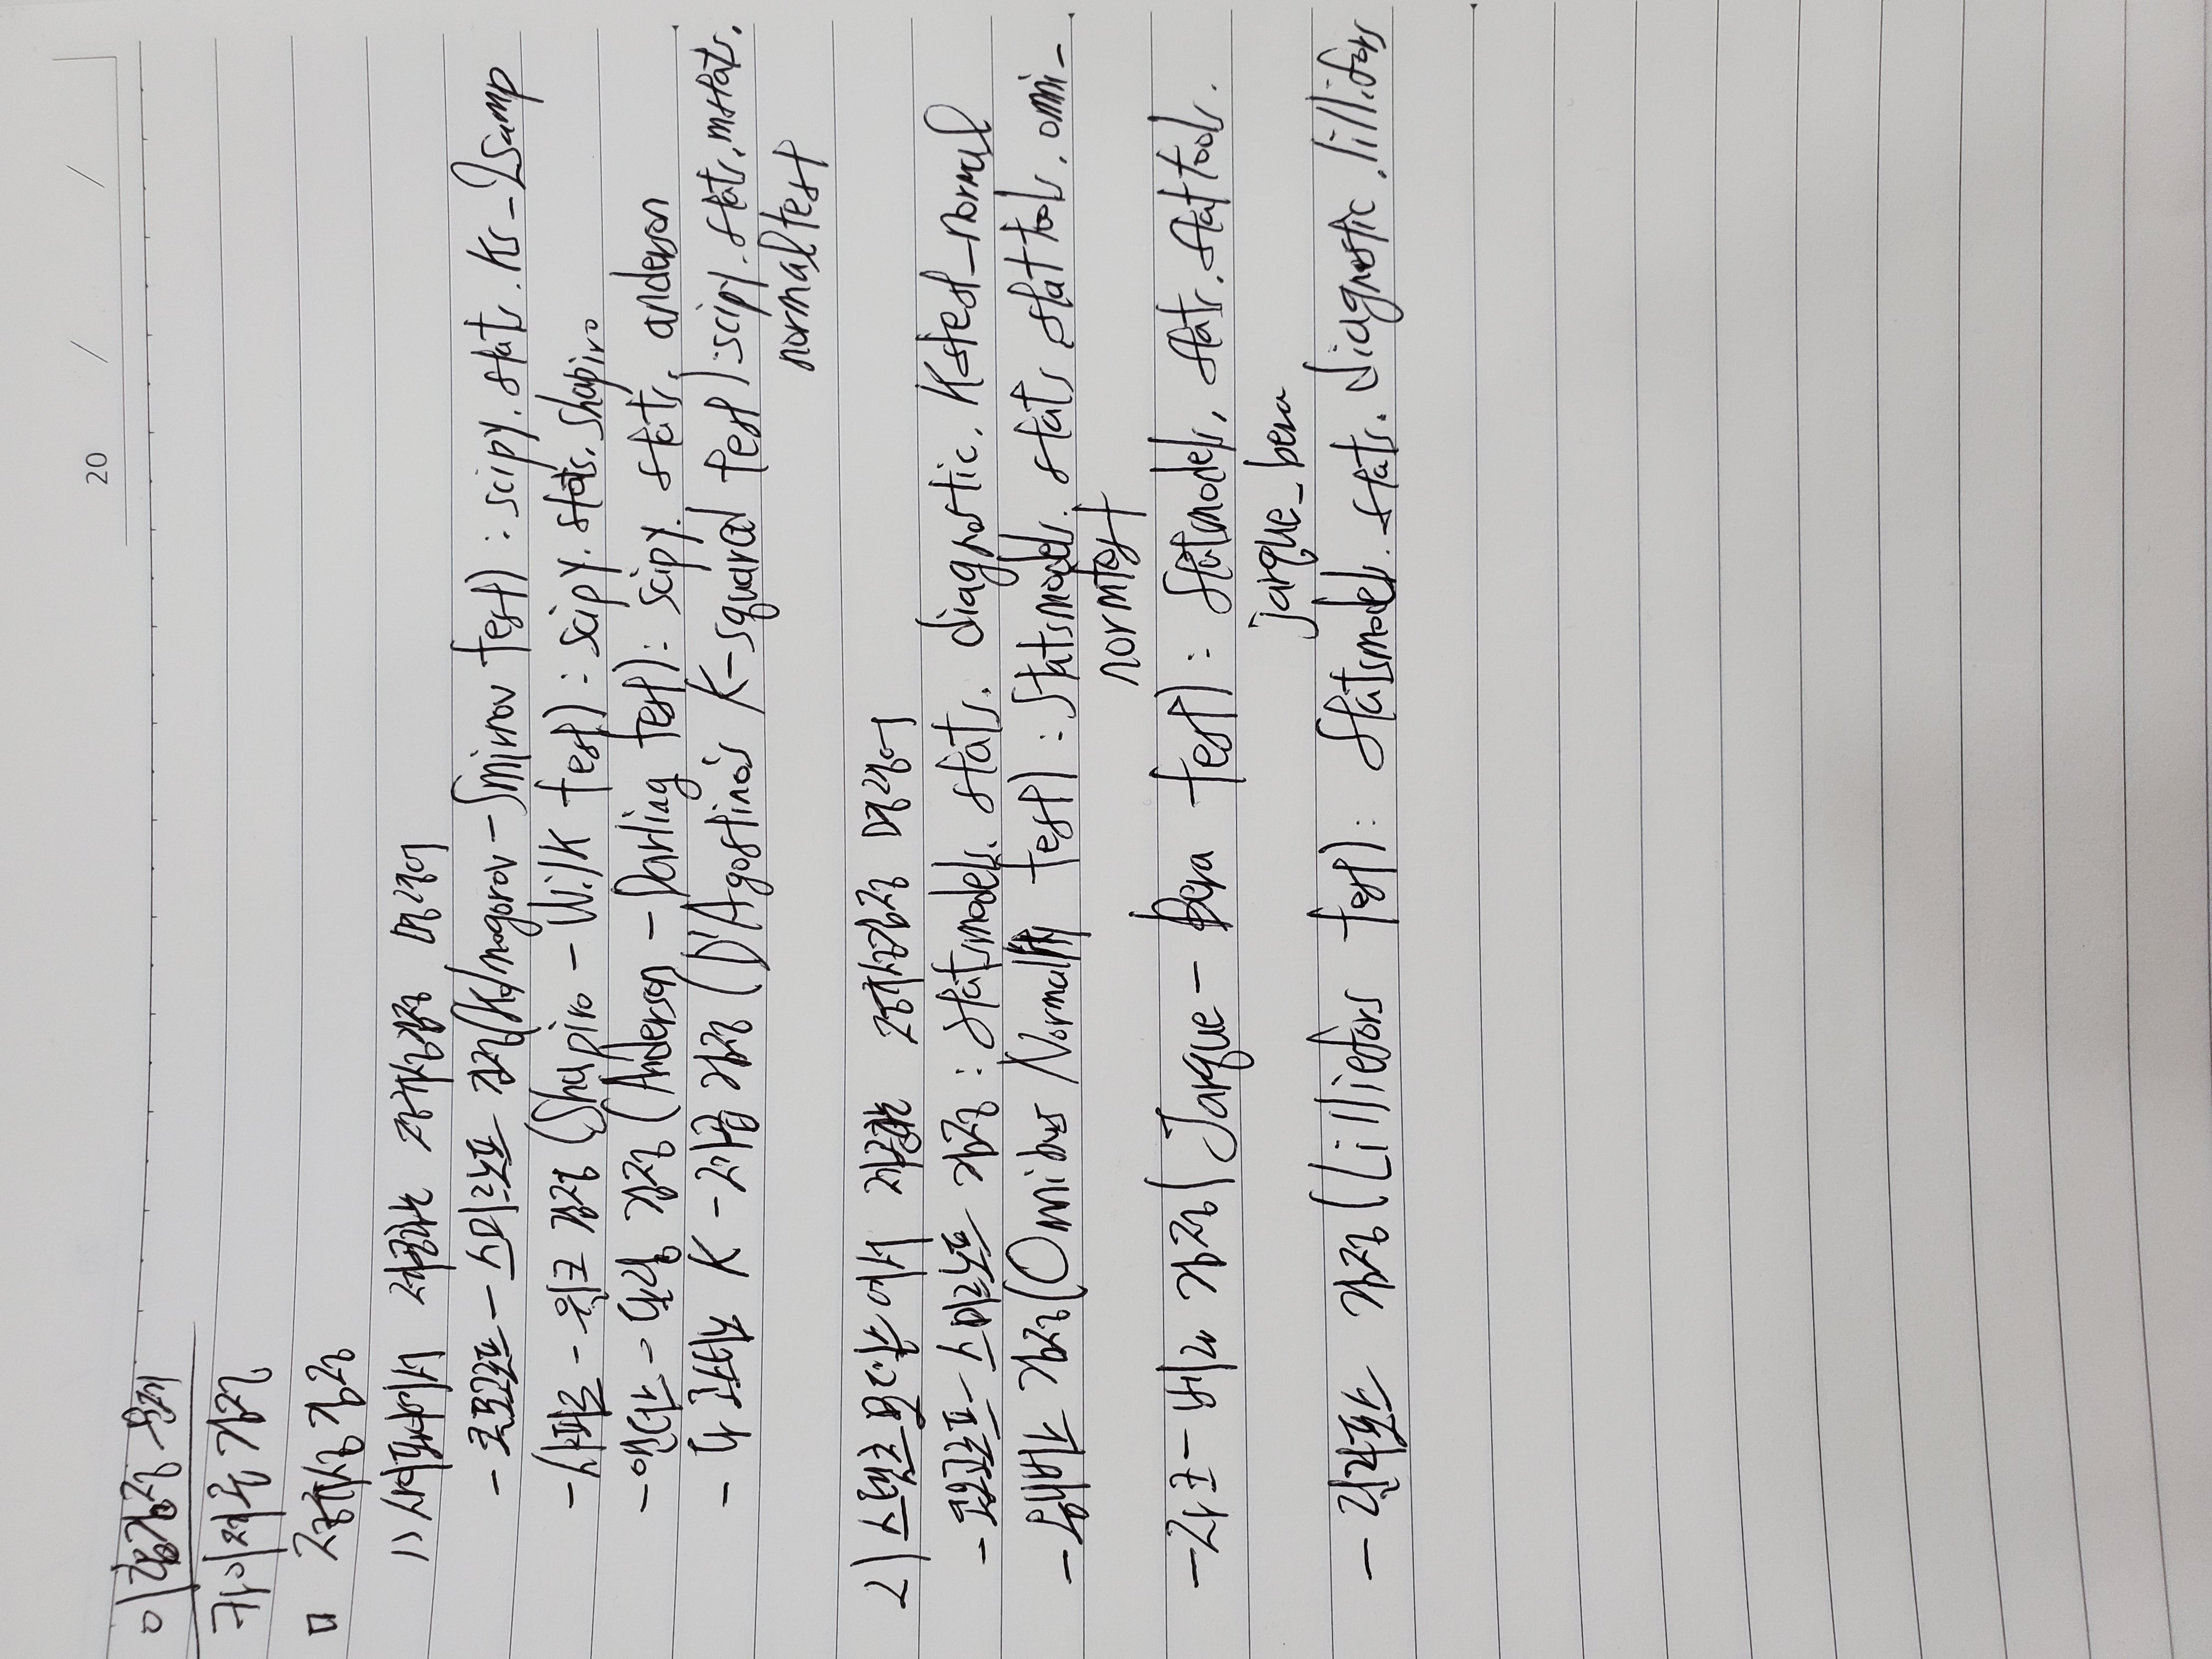 20 / /
이항검정 문제
카이제곱 검정
□ 정규성 검정
1) 사이파이에서 제공하는 정규성검정 명령어
- 콜모고로프 - 스미르노프 검정(Kolmogorov - Smirnov test) : scipy. stats. ks_2samp
- 샤피로 - 윌크 검정 (Shapiro - Wilk test) : scipy. stats. shapiro
- 앤더슨 - 달링 검정 (Anderson - Darling test) : scipy. stats. anderson
- 다고스티노 K - 제곱 검정 (D'Agostino's K-squared test) : scipy. stats. mstats.
normaltest
2) 스탯츠모델스에서 제공하는 정규성검정 명령어
- 콜모고로프 - 스미르노프 검정 : statsmodels. stats. diagnostic. kstest_normal
- 옴니버스 검정(Omnibus Normality test) : statsmodels. stats. stattools. omni_
normtest
- 자크 - 베라 검정( Jarque - Bera test) : statsmodels. stats. stattools.
jarque_bera
- 릴리포스 검정(Lilliefors test) : statsmodels. stats. diagnostic. lillifors